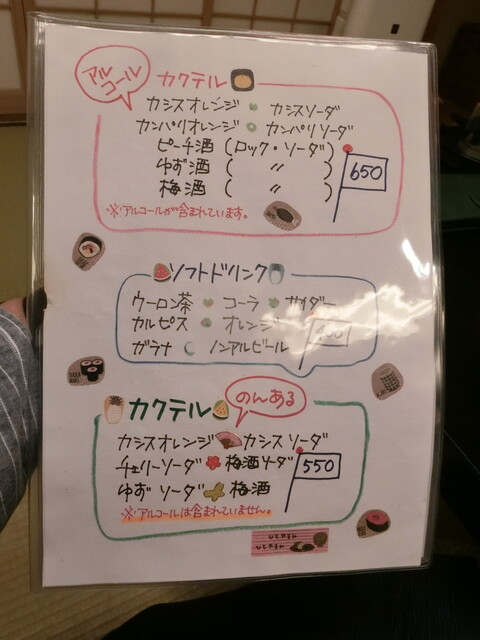 アルコール
カクテル
カシスオレンジ カシスソーダ
カンパリオレンジ カンパリソーダ
ピーチ酒 (ロック・ソーダ)
ゆず酒 ( 〃 )
梅酒 ( 〃 )
650
※アルコールが含まれています。
ソフトドリンク
ウーロン茶 コーラ サイダー
カルピス オレンジ
ガラナ ノンアルビール
カクテル
のんある
カシスオレンジ カシスソーダ
チェリーソーダ 梅酒ソーダ
ゆずソーダ 梅酒
550
※アルコールは含まれていません。
ひとやすみ